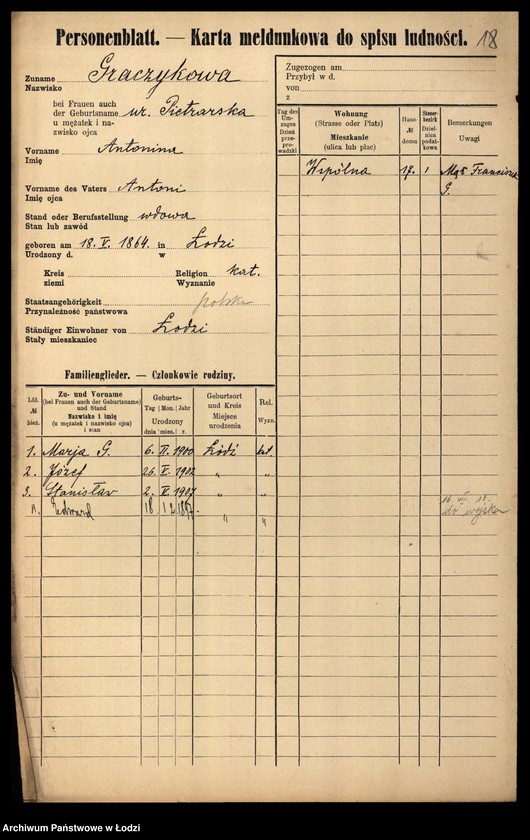 Personenblatt. — Karta meldunkowa do spisu ludności. 18
Zuname Graczykowa
Nazwisko
bei Frauen auch
der Geburtsname ur. Pietrarska
u mężatek i na-
zwisko ojca
Vorname Antonina
Imię
Vorname des Vaters Antoni
Imię ojca
Stand oder Berufsstellung wdowa
Stan lub zawód
geboren am 18. V. 1864. in Łodzi
Urodzony d. w
Kreis Religion kat.
ziemi Wyznanie
Staatsangehörigkeit polska
Przynależność państwowa
Ständiger Einwohner von Łodzi
Stały mieszkaniec
Familienglieder. — Członkowie rodziny.
Lfd. № bież.
Zu- und Vorname
(bei Frauen auch der Geburtsname)
und Stand
Nazwisko i imię
(u mężatek i nazwisko ojca)
i stan
Geburts-
Tag Mon. Jahr
Urodzony
dnia mies. r.
Geburtsort
und Kreis
Miejsce
urodzenia
Rel.
Wyzn.
1. Marja G. 6. II. 1900 Łódź kat.
2. Józef 26. V. 1902 " "
3. Stanisław 2. V. 1907 " "
Edward 18 12 " "
Zugezogen am
Przybył w d.
von
z
Tag des
Um-
zuges
Dzień
prze-
prowadzki
Wohnung
(Strasse oder Platz)
Mieszkanie
(ulica lub plac)
Haus-
№
domu
Steuer-
bezirk
Dziel-
nica
podat-
kowa
Bemerkungen
Uwagi
Wspólna 17. 1 Mąż Franciszek
G.
do wojska
Archiwum Państwowe w Łodzi